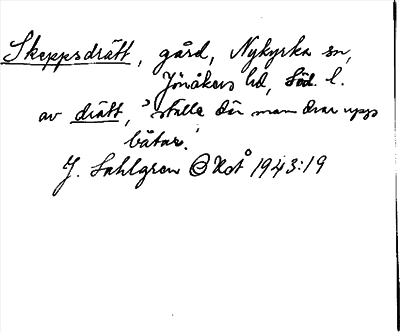 Skeppsdrätt, gård, Nykyrka sn,
Jönåkers hd, Söd. l.
av drätt, 'ställe där man drar upp
båtar'.
J. Sahlgren 1943:19